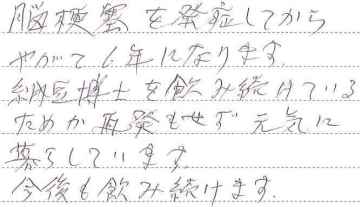 脳梗塞を発症してから
やがて6年になります。
納豆博士を飲み続けている
ためか再発もせず元気に
暮らしています。
今後も飲み続けます。